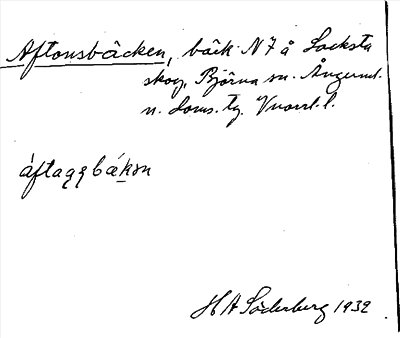 Aftonsbäcken, bäck N 7 å Locksta
skog, Björna sn. Ångerml.
n. doms. tg. Västerl. l.
áftaqqbákɘn
H A Söderberg 1932